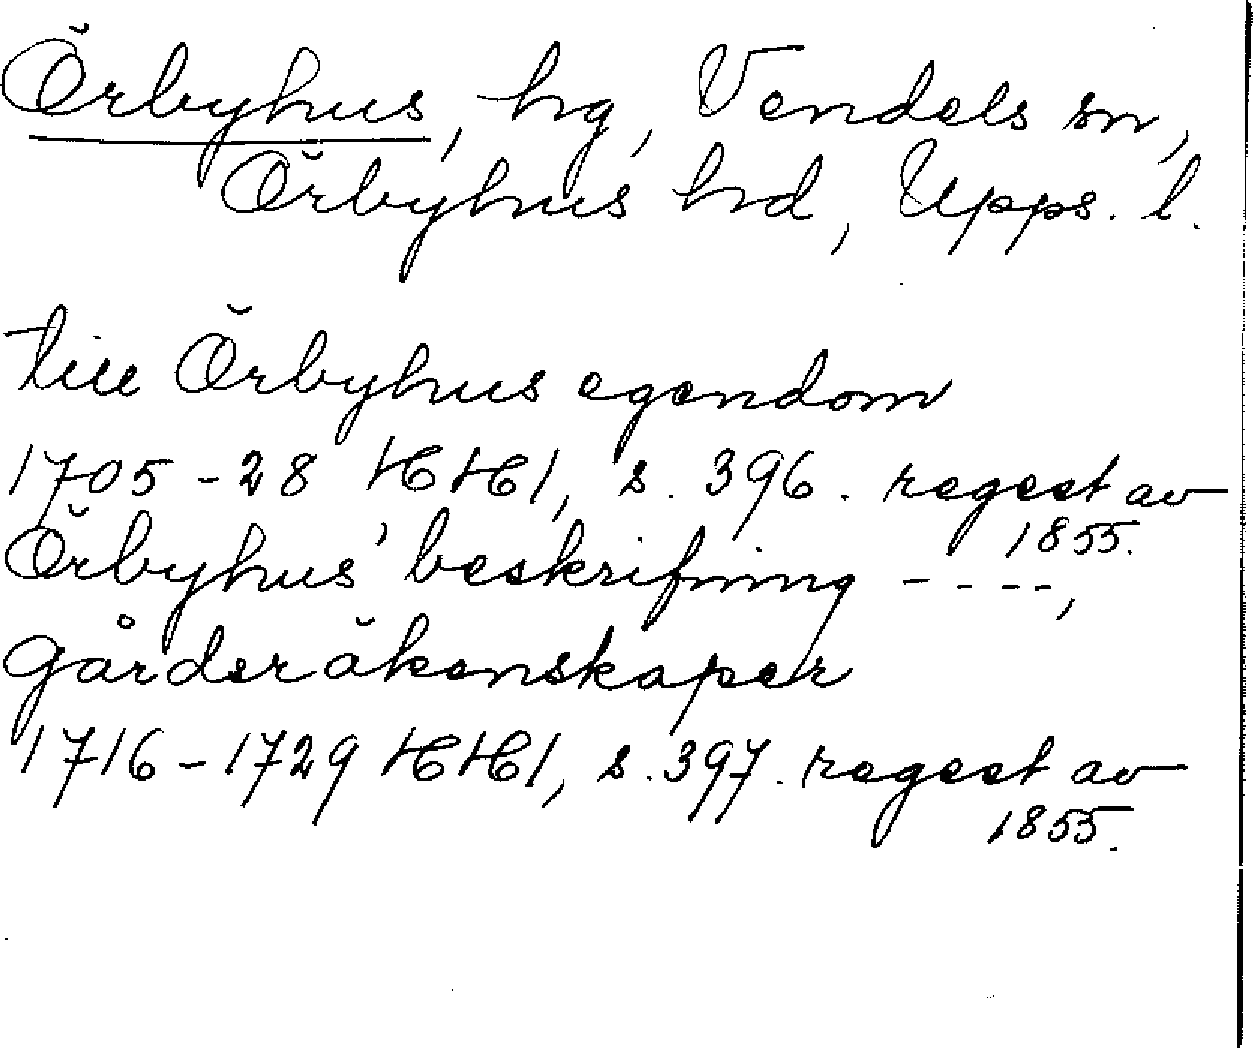 Örbyhus, hg, Vendels sn,
Örbyhus hd, Upps. l.
till Örbyhus egendom
1705-28 HH1, s. 396. regest av
1855.
Örbyhus' beskrifning ----,
Gårdsräkenskaper
1716-1729 HH1, s. 397. regest av
1855.